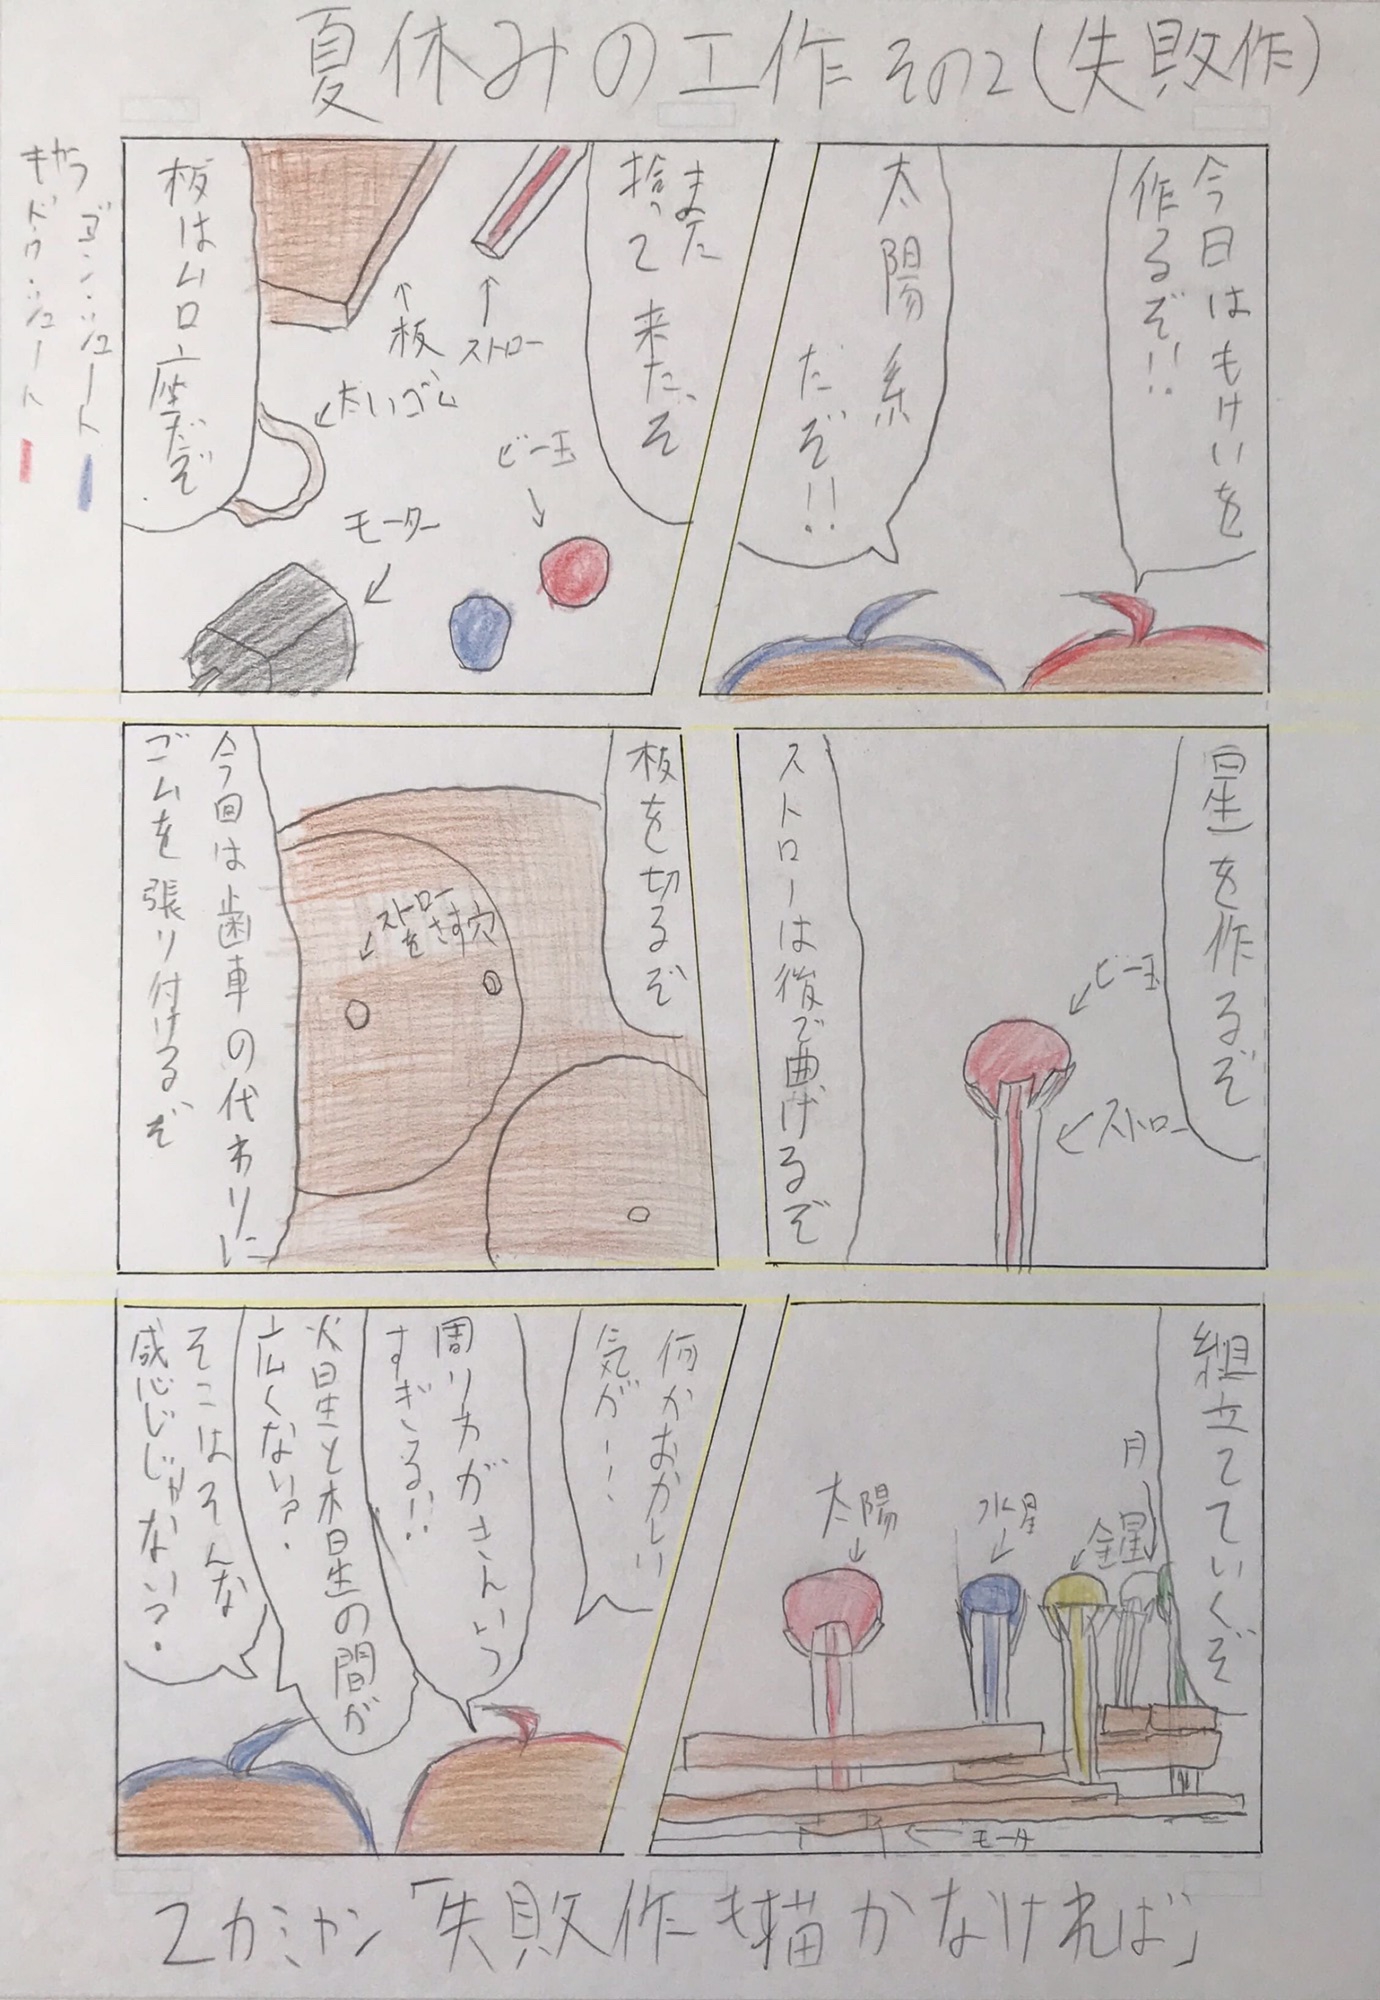 夏休みの工作その2(失敗作)
今日はもけいを
作るぞ!!
太陽系
だぞ!!
また
拾って来たぞ
ストロー
板
太いゴム
ビー玉
モーター
板はムロ座だぞ
星を作るぞ
ビー玉
ストロー
ストローは後で曲げるぞ
板を切るぞ
ストロー
をさす穴
今回は歯車の代わりに
ゴムを張り付けるぞ
組立てていくぞ
月
金星
水星
太陽
モータ
何かおかしい
気が…
周り方がきんいつ
すぎる!!
火星と木星の間が
広くない?
そこはそんな
感じじゃない?
2カミヤン「失敗作も描かなければ」